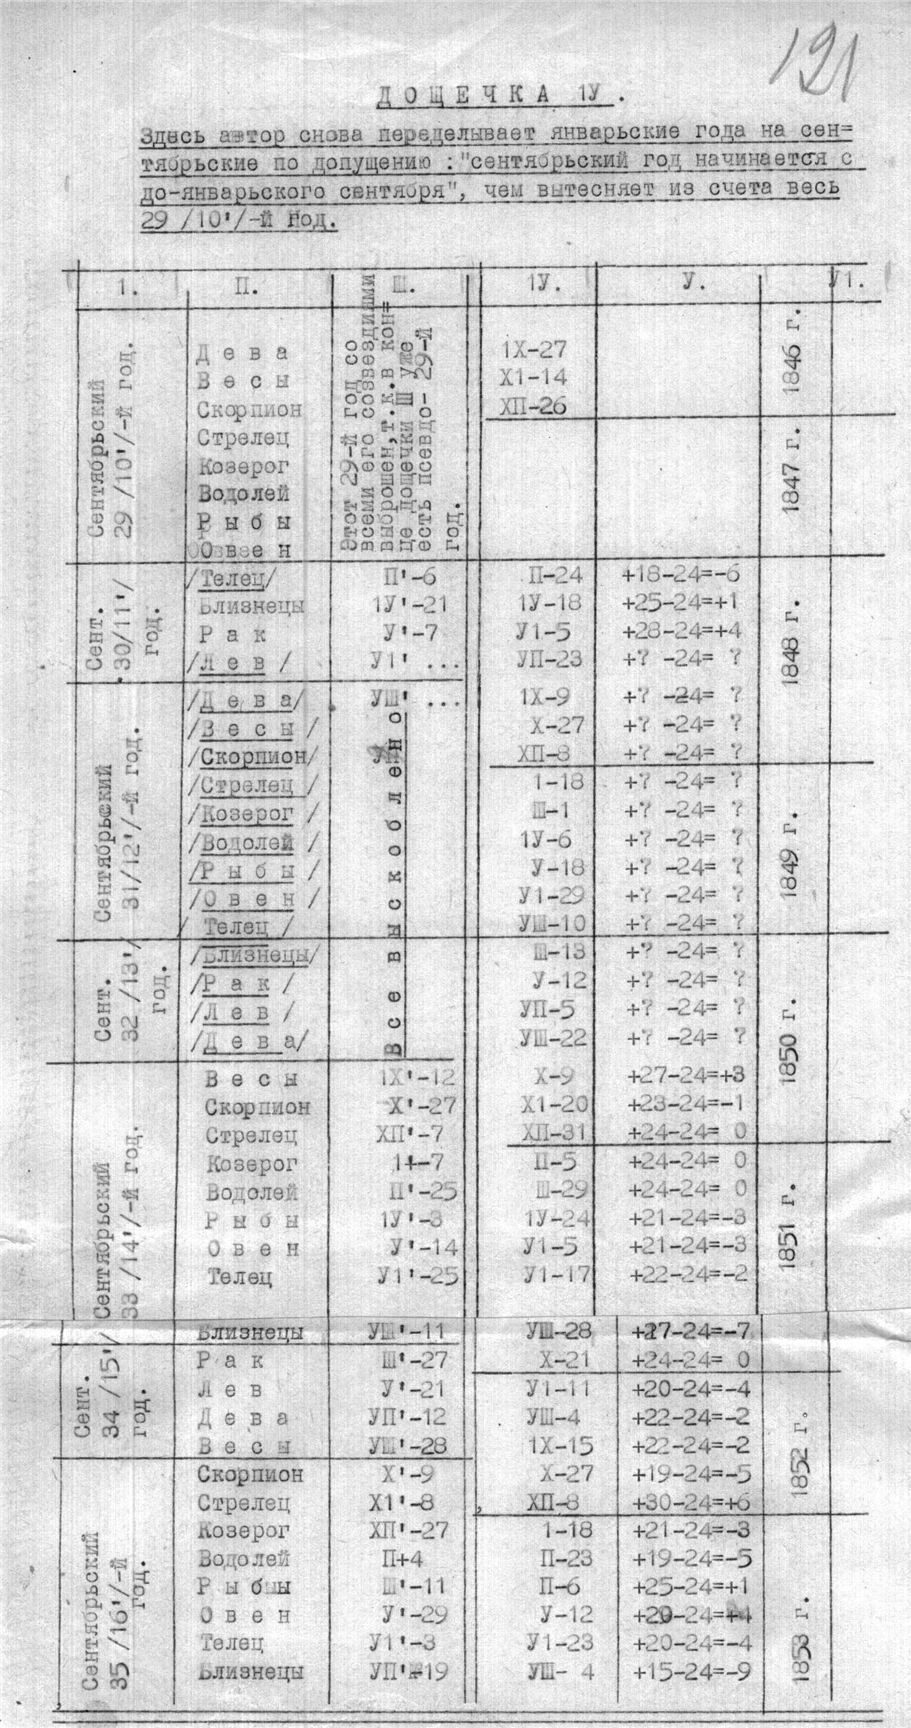 121
ДОЩЕЧКА 1У.
Здесь автор снова переделывает январьские года на сен=
тябрьские по допущению :"сентябрьский год начинается с
до-январьского сентября", чем вытесняет из счета весь
29 /10'/-й год.
1. П. Ш. 1У. У. У1.
Сентябрьский
29 /10'/-й год.
Этот 29-й год со
всеми его созвездиями
выброшен,т.к.в кон=
це дощечки Ш уже
есть псевдо- 29-й
год.
1846 г.
1847 г.
Дева 1Х-27
Весы Х1-14
Скорпион ХП-26
Стрелец
Козерог
Водолей
Рыбы
Овен
Сент.
30/11'/
год.
1848 г.
/Телец/ П'-6 П-24 +18-24=-6
Близнецы 1У'-21 1У-18 +25-24=+1
Рак У'-7 У1-5 +28-24=+4
/Лев/ У1' ... УП-23 +? -24= ?
Сентябрьский
31/12'/-й год.
Все выскоблено
1849 г.
/Дева/ УШ' ... 1Х-9 +? -24= ?
/Весы/ Х-27 +? -24= ?
/Скорпион/ ХП-8 +? -24= ?
/Стрелец/ 1-18 +? -24= ?
/Козерог/ Ш-1 +? -24= ?
/Водолей/ 1У-6 +? -24= ?
/Рыбы/ У-18 +? -24= ?
/Овен/ У1-29 +? -24= ?
/Телец/ УШ-10 +? -24= ?
Сент.
32 /13'/
год.
1850 г.
/Близнецы/ Ш-13 +? -24= ?
/Рак/ У-12 +? -24= ?
/Лев/ УП-5 +? -24= ?
/Дева/ УШ-22 +? -24= ?
Сентябрьский
33 /14'/-й год.
1851 г.
Весы 1Х'-12 Х-9 +27-24=+3
Скорпион Х'-27 Х1-20 +23-24=-1
Стрелец ХП'-7 ХП-31 +24-24= 0
Козерог 1+-7 П-5 +24-24= 0
Водолей П'-25 Ш-29 +24-24= 0
Рыбы 1У'-3 1У-24 +21-24=-3
Овен У'-14 У1-5 +21-24=-3
Телец У1'-25 У1-17 +22-24=-2
Близнецы УШ'-11 УШ-28 +17-24=-7
Сент.
34 /15'/
год.
1852 г.
Рак Ш'-27 Х-21 +24-24= 0
Лев У'-21 У1-11 +20-24=-4
Дева УП'-12 УШ-4 +22-24=-2
Весы УШ'-28 1Х-15 +22-24=-2
Сентябрьский
35 /16'/-й
год.
1853 г.
Скорпион Х'-9 Х-27 +19-24=-5
Стрелец Х1'-8 ХП-8 +30-24=+6
Козерог ХП'-27 1-18 +21-24=-3
Водолей П+4 П-23 +19-24=-5
Рыбы Ш'-11 П-6 +25-24=+1
Овен У'-29 У-12
Телец У1'-3 У1-23 +20-24=-4
Близнецы УП'-19 УШ- 4 +15-24=-9